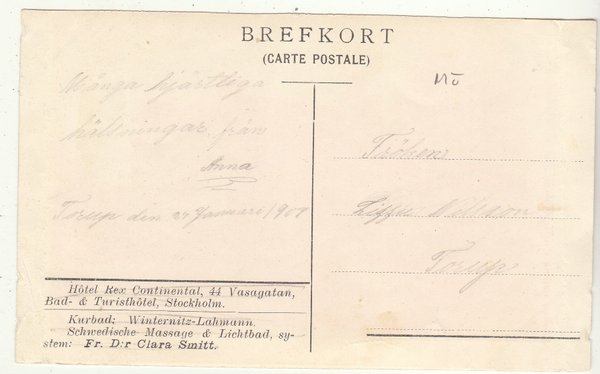 BREFKORT
(CARTE POSTALE)
Många hjärtliga
hälsningar från
Anna
Torup den 27 Januari 1908
Fröken
Nilsson
Torup
Hôtel Rex Continental, 44 Vasagatan,
Bad- & Turisthôtel, Stockholm.
Kurbad: Winternitz-Lahmann.
Schwedische Massage & Lichtbad, sy-
stem: Fr. D:r Clara Smitt.